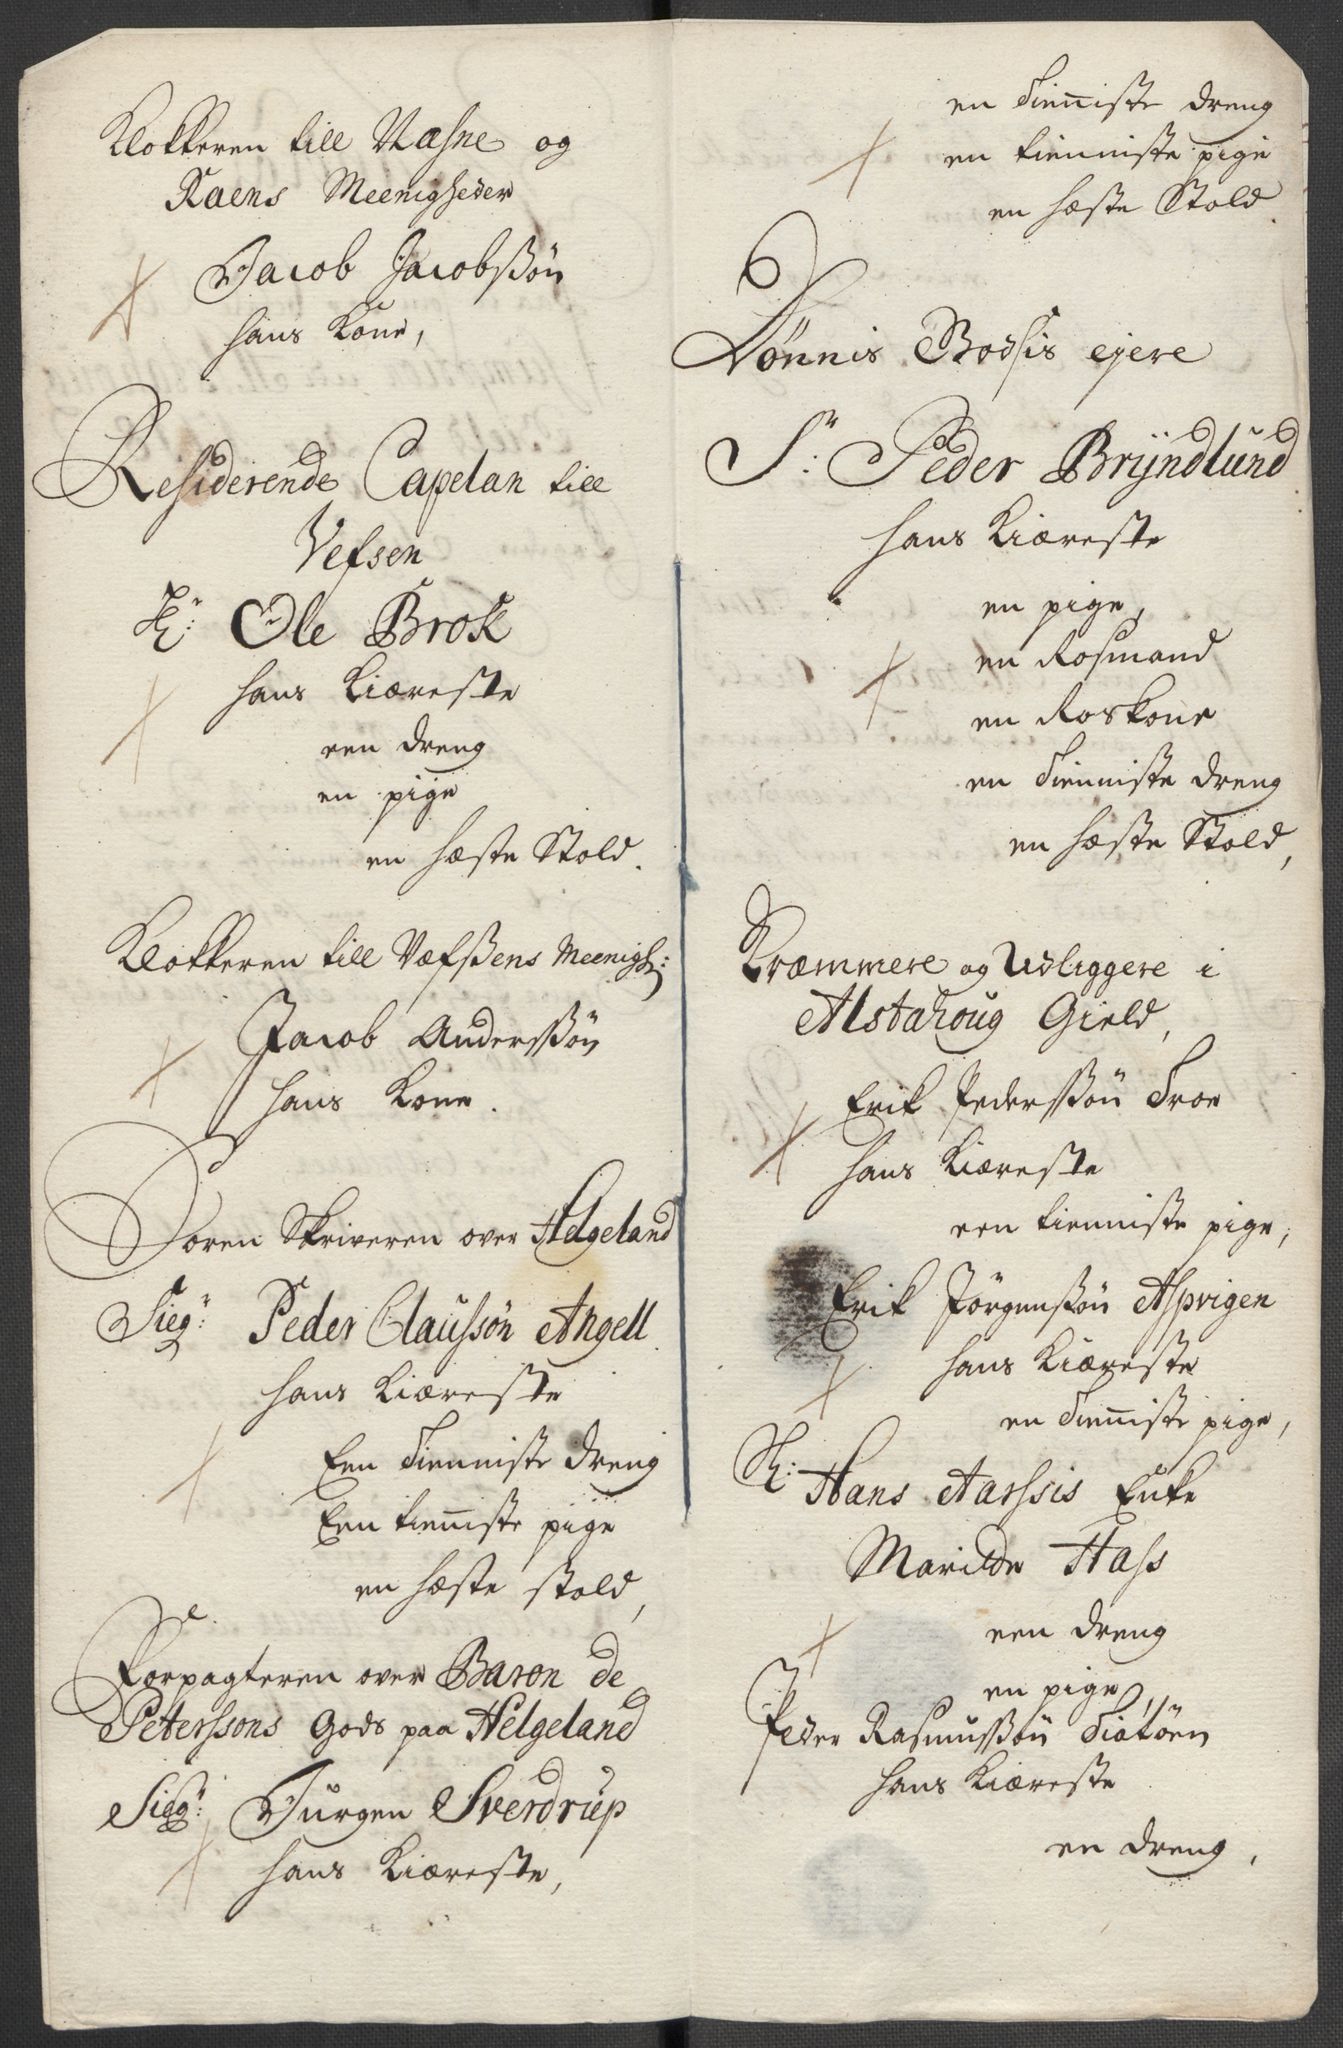 Klokkeren till Næsne og
Raens Meenigheder
Jacob Jacobssøn
hans Kone,
Residerende Capelan till
Vefsen
Hr: Ole Brok
hans Kiæreste
een dreng
en pige
en hæste Stold.
Klokkeren till Væfssens Meenigh:
Jacob Anderssøn
hans Kone.
Soren Skriveren over Helgeland
Sieg: Peder Claussøn Angell
hans Kiæreste
Een Tienniste dreng
Een tienniste pige
en hæste stold,
Forpagteren over Baron de
Peterssons Gods paa Helgeland
Sigr: Jurgen Sverdrup
hans Kiæreste,
en Tienniste dreng
en tienniste pige
en hæste Stold
Dønnis Godsis ejere
Sr: Peder Brijndlund
hans Kiæreste
en pige,
en Rosmand
en Roskone
en Tienniste dreng
en hæste Stold,
Kræmmere og Udliggere i
Alstahoug Gield,
Erik Pederssøn Troe
hans Kiæreste
een tienniste pige,
Erik Jørgenssøn
hans Kiæreste
en Tienniste pige,
Hr: Hans Aarssis Enke
Marilde Hass
een dreng
en pige,
Peder Rasmussøn Tiøtøen
hans Kiæreste
en dreng,